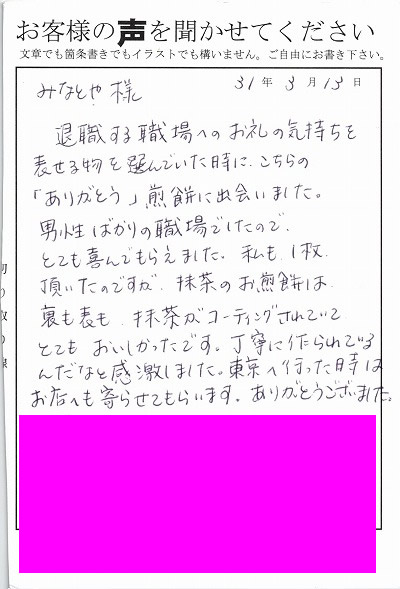 お客様の声を聞かせてください
文章でも箇条書きでもイラストでも構いません。ご自由にお書き下さい。
31年 3月13日
みなとや様
退職する職場へのお礼の気持ちを
表せる物を選んでいた時に、こちらの
「ありがとう」煎餅に出会いました。
男性ばかりの職場でしたので、
とても喜んでもらえました。私も、1枚、
頂いたのですが、抹茶のお煎餅は、
裏も表も、抹茶がコーティングされていて
とてもおいしかったです。丁寧に作られている
んだなと感激しました。東京へ行った時は
お店へも寄らせてもらいます。ありがとうございました。